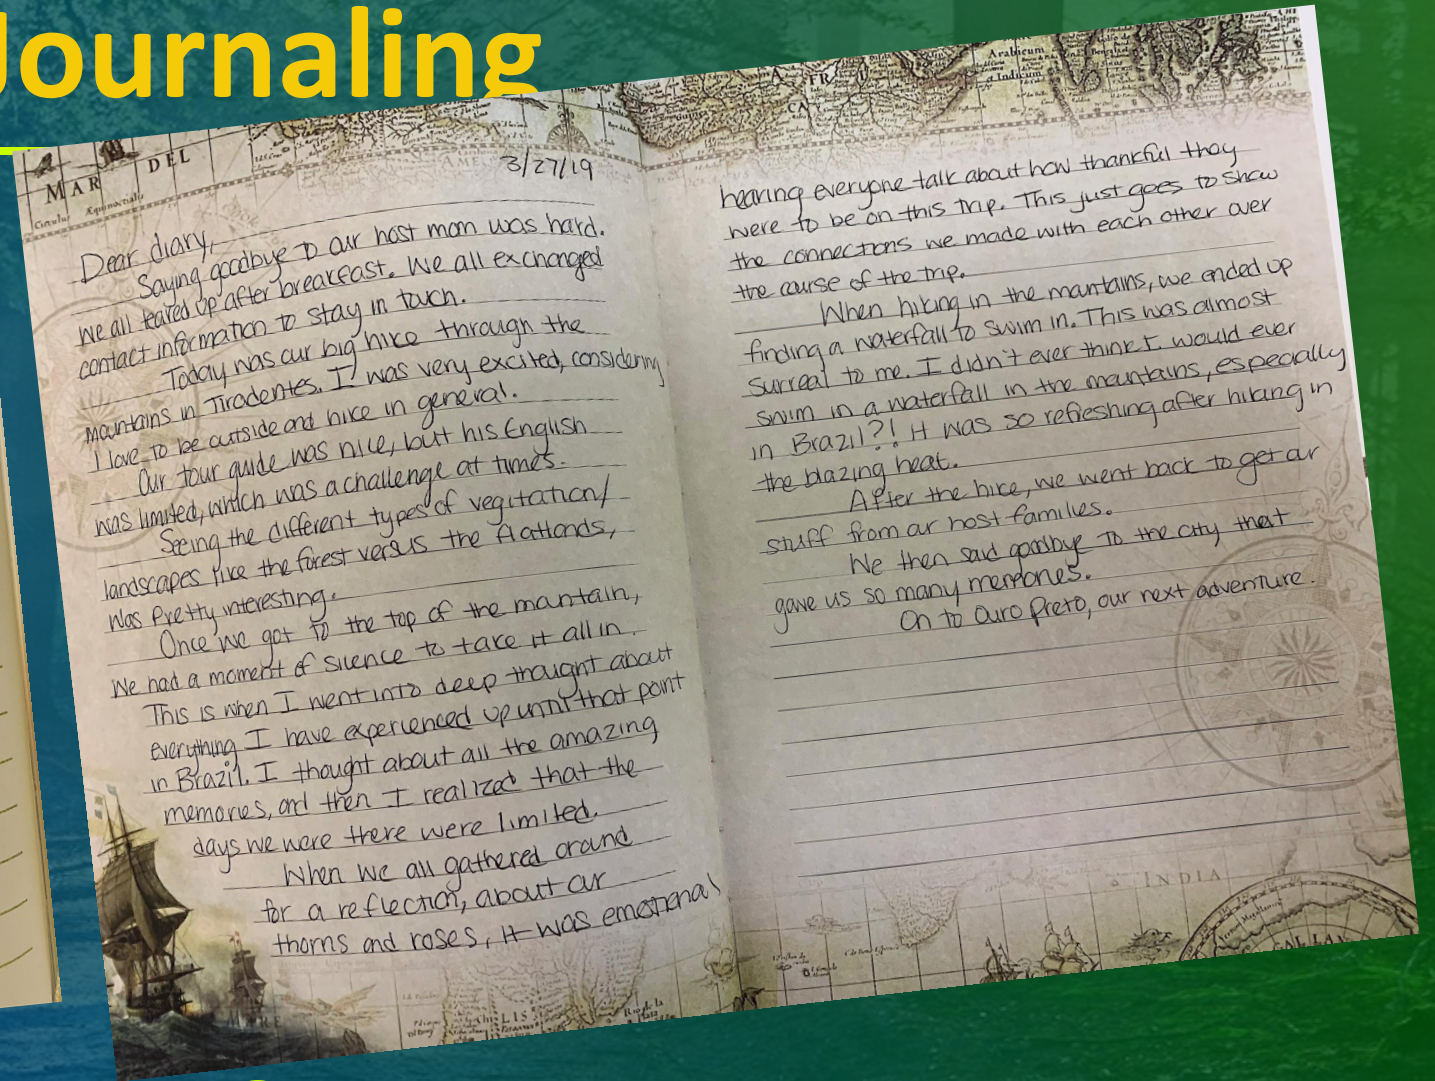 Journaling
MAR DEL
3/27/19
Dear diary,
Saying goodbye to our host mom was hard.
We all teared up after breakfast. We all exchanged
contact information to stay in touch.
Today was our big hike through the
mountains in Tiradentes. I was very excited, considering
I love to be outside and hike in general.
Our tour guide was nice, but his English
was limited, which was a challenge at times.
Seeing the different types of vegitation/
landscapes like the forest versus the flatlands,
was pretty interesting.
Once we got to the top of the mountain,
we had a moment of silence to take it all in.
This is when I went into deep thought about
everything I have experienced up until that point
in Brazil. I thought about all the amazing
memories, and then I realized that the
days we were there were limited.
When we all gathered around
for a reflection, about our
thorns and roses, it was emotional
hearing everyone talk about how thankful they
were to be on this trip. This just goes to show
the connections we made with each other over
the course of the trip.
When hiking in the mountains, we ended up
finding a waterfall to swim in. This was almost
surreal to me. I didn't ever think I would ever
swim in a waterfall in the mountains, especially
in Brazil?! It was so refreshing after hiking in
the blazing heat.
After the hike, we went back to get our
stuff from our host families.
We then said goodbye to the city that
gave us so many memories.
On to Ouro Preto, our next adventure.
INDIA